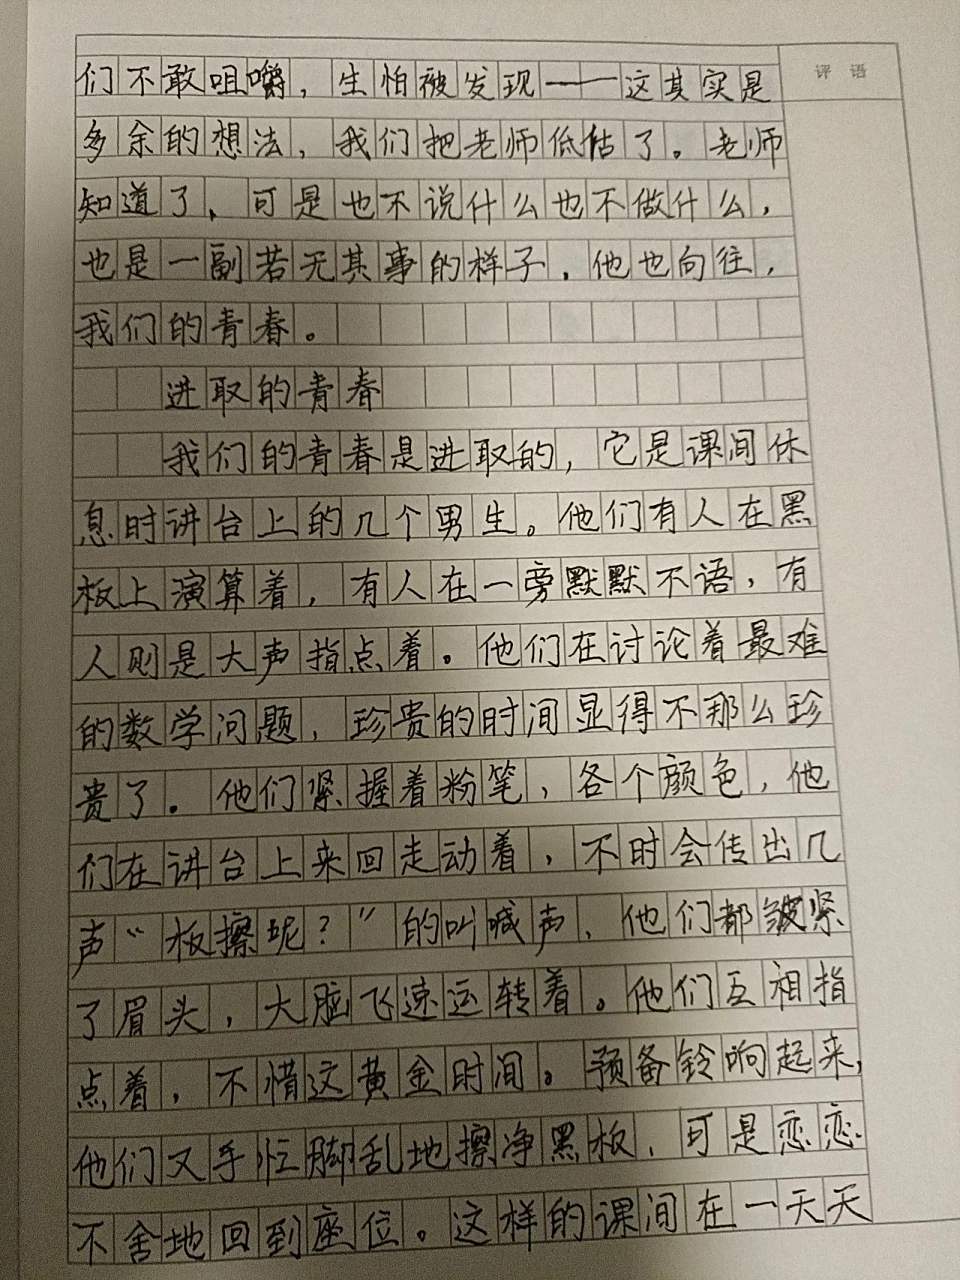 评 语
们不敢咀嚼，生怕被发现——这其实是
多余的想法，我们把老师低估了。老师
知道了，可是也不说什么也不做什么，
也是一副若无其事的样子，他也向往，
我们的青春。
进取的青春
我们的青春是进取的，它是课间休
息时讲台上的几个男生。他们有人在黑
板上演算着，有人在一旁默默不语，有
人则是大声指点着。他们在讨论着最难
的数学问题，珍贵的时间显得不那么珍
贵了。他们紧握着粉笔，各个颜色，他
们在讲台上来回走动着，不时会传出几
声“板擦呢？”的叫喊声，他们都皱紧
了眉头，大脑飞速运转着。他们互相指
点着，不惜这黄金时间。预备铃响起来，
他们又手忙脚乱地擦净黑板，可是恋恋
不舍地回到座位。这样的课间在一天天